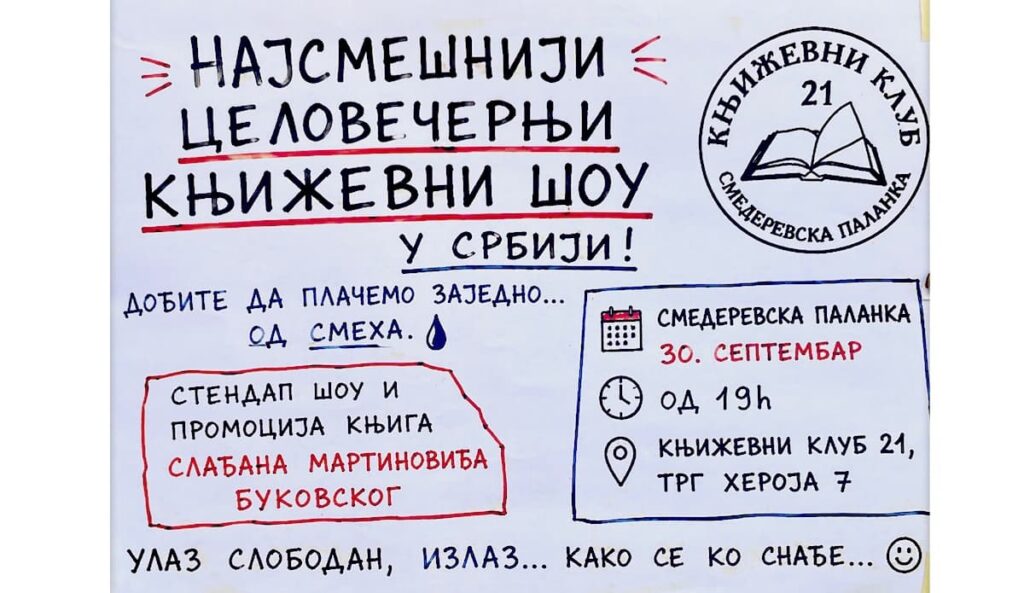 НАЈСМЕШНИЈИ
ЦЕЛОВЕЧЕРЊИ
КЊИЖЕВНИ ШОУ
У СРБИЈИ!
КЊИЖЕВНИ КЛУБ
21
СМЕДЕРЕВСКА ПАЛАНКА
ДОЂИТЕ ДА ПЛАЧЕМО ЗАЈЕДНО...
ОД СМЕХА.
СТЕНДАП ШОУ И
ПРОМОЦИЈА КЊИГА
СЛАЂАНА МАРТИНОВИЋА
БУКОВСКОГ
СМЕДЕРЕВСКА ПАЛАНКА
30. СЕПТЕМБАР
ОД 19h
КЊИЖЕВНИ КЛУБ 21,
ТРГ ХЕРОЈА 7
УЛАЗ СЛОБОДАН, ИЗЛАЗ... КАКО СЕ КО СНАЂЕ...